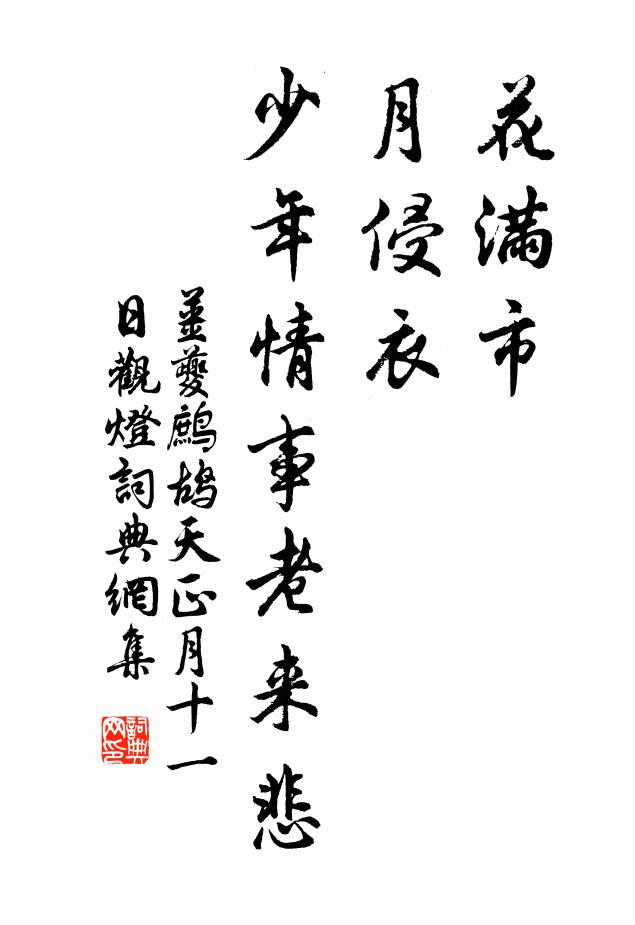 花滿市
月侵衣
少年情事老来悲
姜夔鷓鴣天正月十一
日觀燈詞典網集
詞典
网印